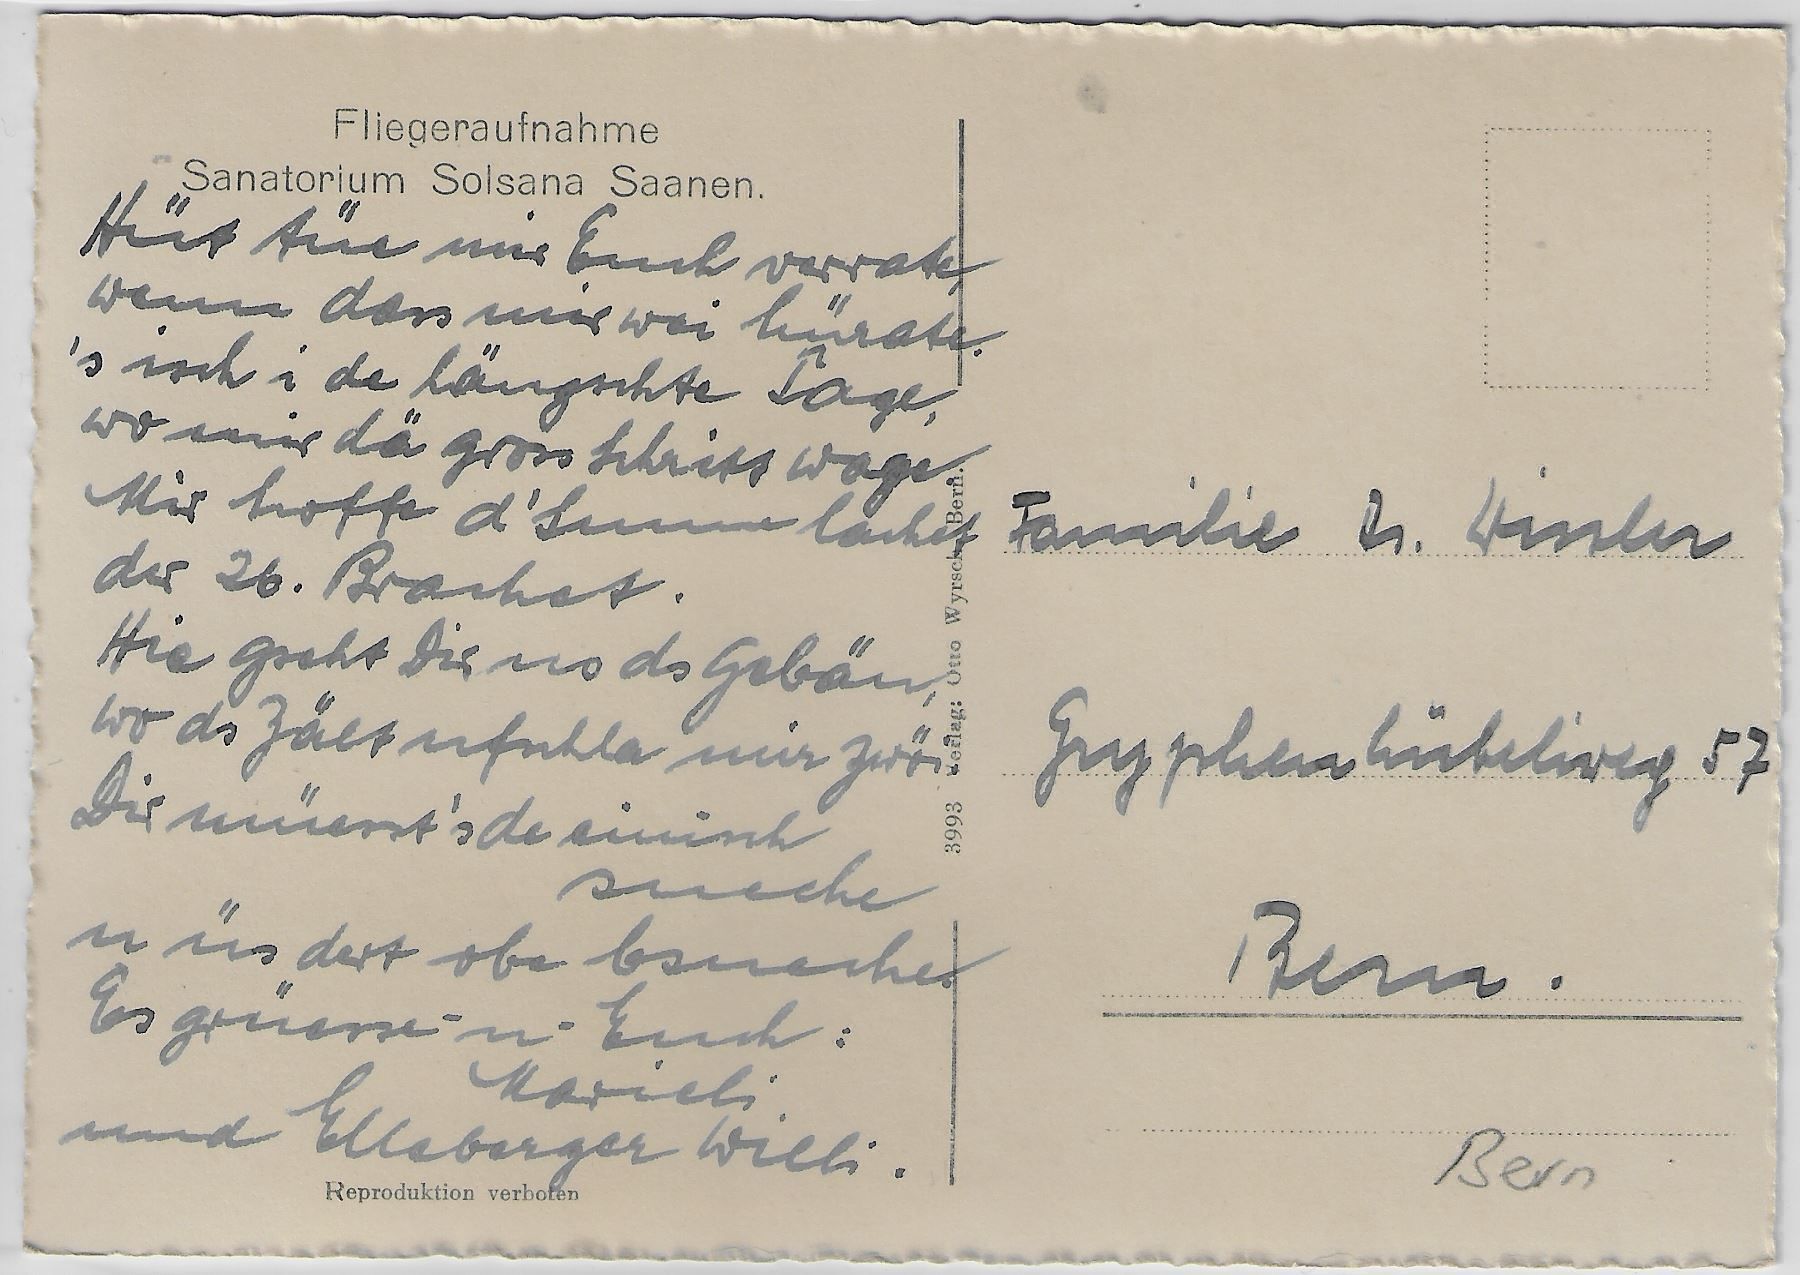 Fliegeraufnahme
Sanatorium Solsana Saanen.
Hüt tüe mir Euch verrate,
wenn dass mir wei hürate.
's isch i de längschte Tage,
wo mir dä gross Schritt wage.
Mir hoffe d'Sunne lachet
der 26. Brachet.
Hie gseht Dir no ds Gebäu,
wo ds Zält ufschla mir zwöi.
Dir müesst's de einisch
sueche
u üs dert obe bsueche.
Es grüesse-n-Euch:
Marieli
und Elleberger Willi.
Reproduktion verboten
3993 Verlag: Otto Wyrsch, Bern.
Familie
Gryphenhübeliweg 57
Bern.
Bern